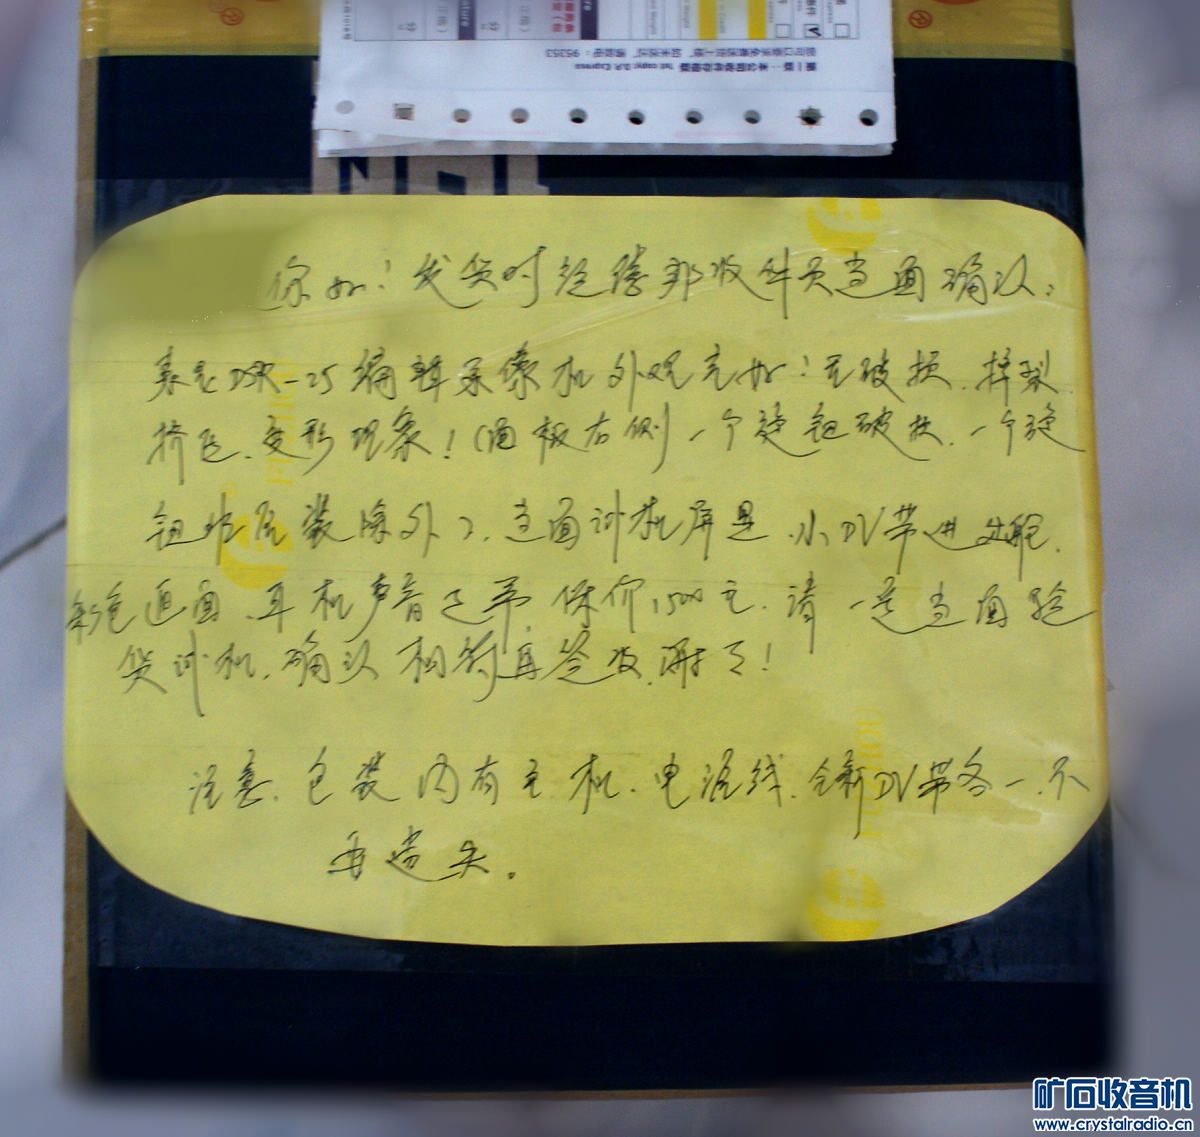 你好！发货时经德邦收件员当面确认：
索尼DSR-25编辑录像机外观完好！无破损、摔裂
挤压、变形现象！(面板右侧一个旋钮破损、一个旋
钮非原装除外)、当面试机屏显、小DV带进出舱、
彩色画面、耳机声音正常、保价1500元、请一定当面验
货试机、确认相符再签收、谢了！
注意、包装内有主机、电源线、全新DV带各一、不
再遗失。
矿石收音机
www.crystalradio.cn